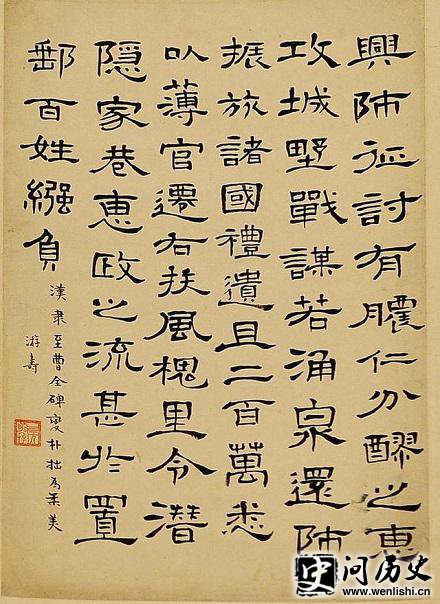 興師征討有膿仁分醪之惠
攻城野戰謀若涌泉還師
振旅諸國禮遺且二百萬悉
以薄官遷右扶風槐里令潛
隱家巷惠政之流甚於置
郵百姓繦負
漢隸至曹全碑變朴拙為柔美
游壽
问历史
www.wenlishi.cn